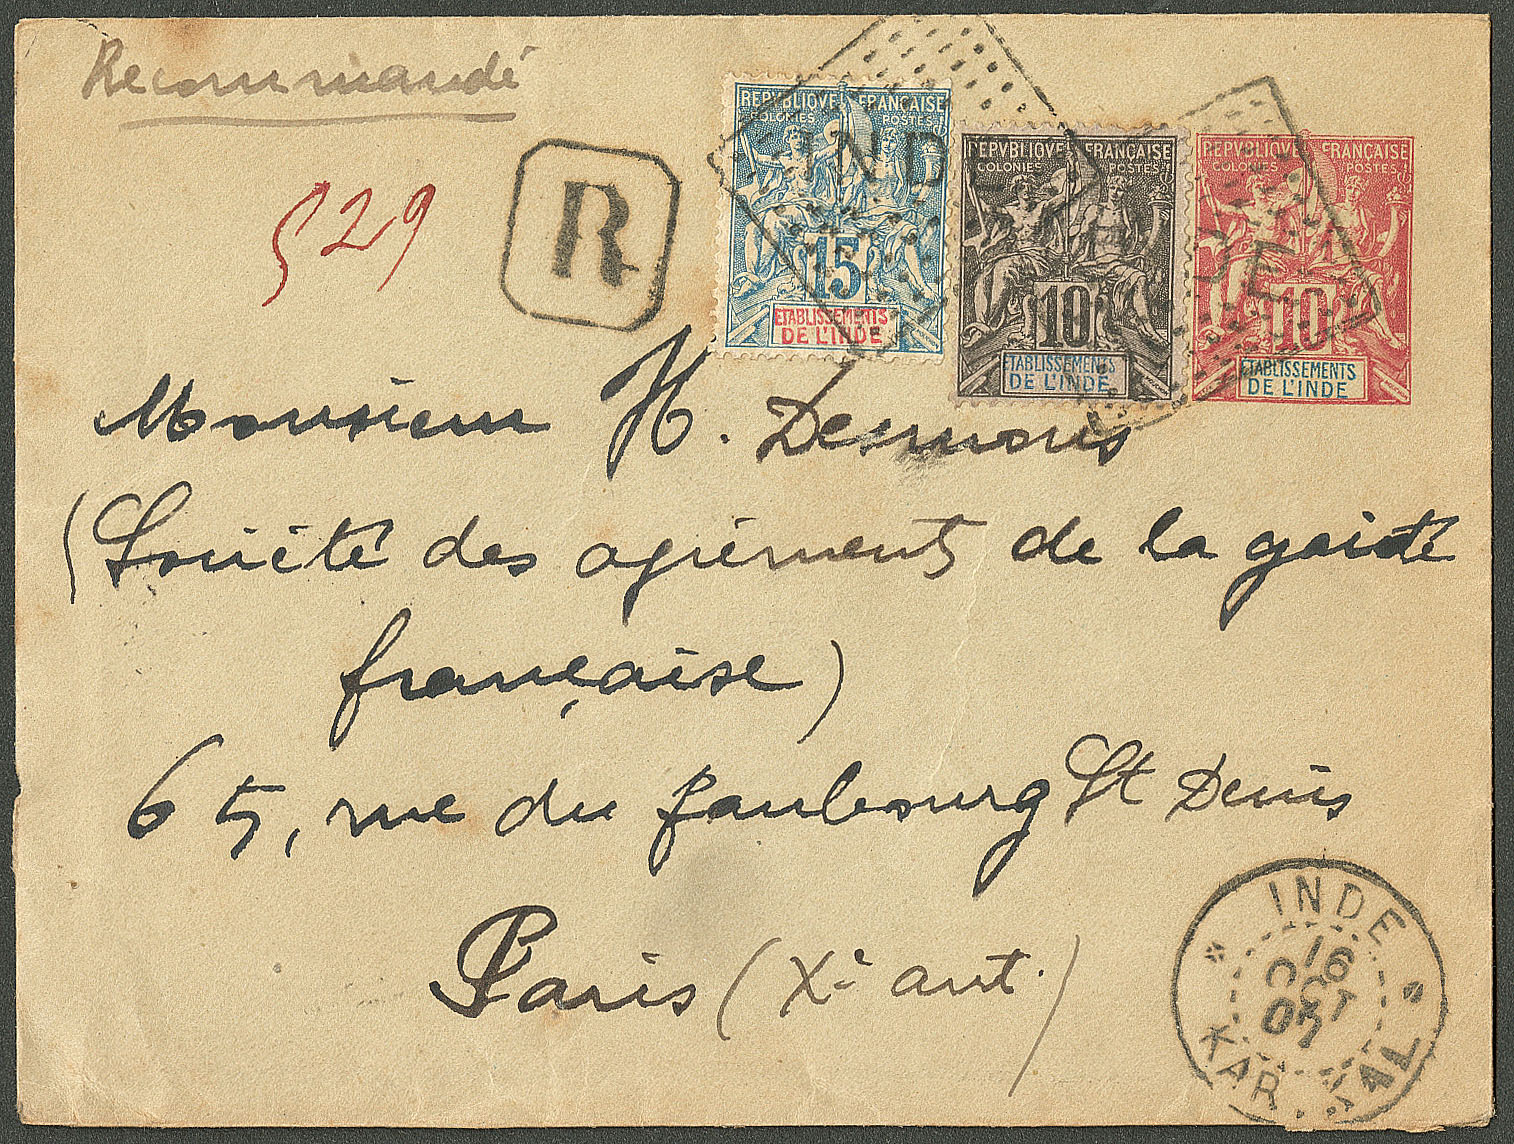 Recommandé
529
R
REPVBLIQVE FRANÇAISE
COLONIES POSTES
15
ETABLISSEMENTS
DE L'INDE
REPVBLIQVE FRANÇAISE
COLONIES POSTES
10
ETABLISSEMENTS
DE L'INDE
REPVBLIQVE FRANÇAISE
COLONIES POSTES
10
ETABLISSEMENTS
DE L'INDE
IND
Monsieur H. Desmons
(Société des agréments de la gaieté
française)
65, rue du faubourg St Denis
Paris (Xe arrt.)
INDE
16
OCT
07
KAR
AL